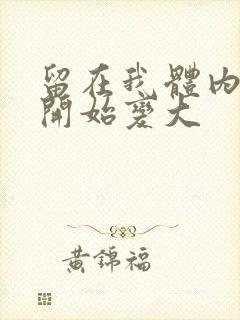 留在我體內
開始變大
黃錦福